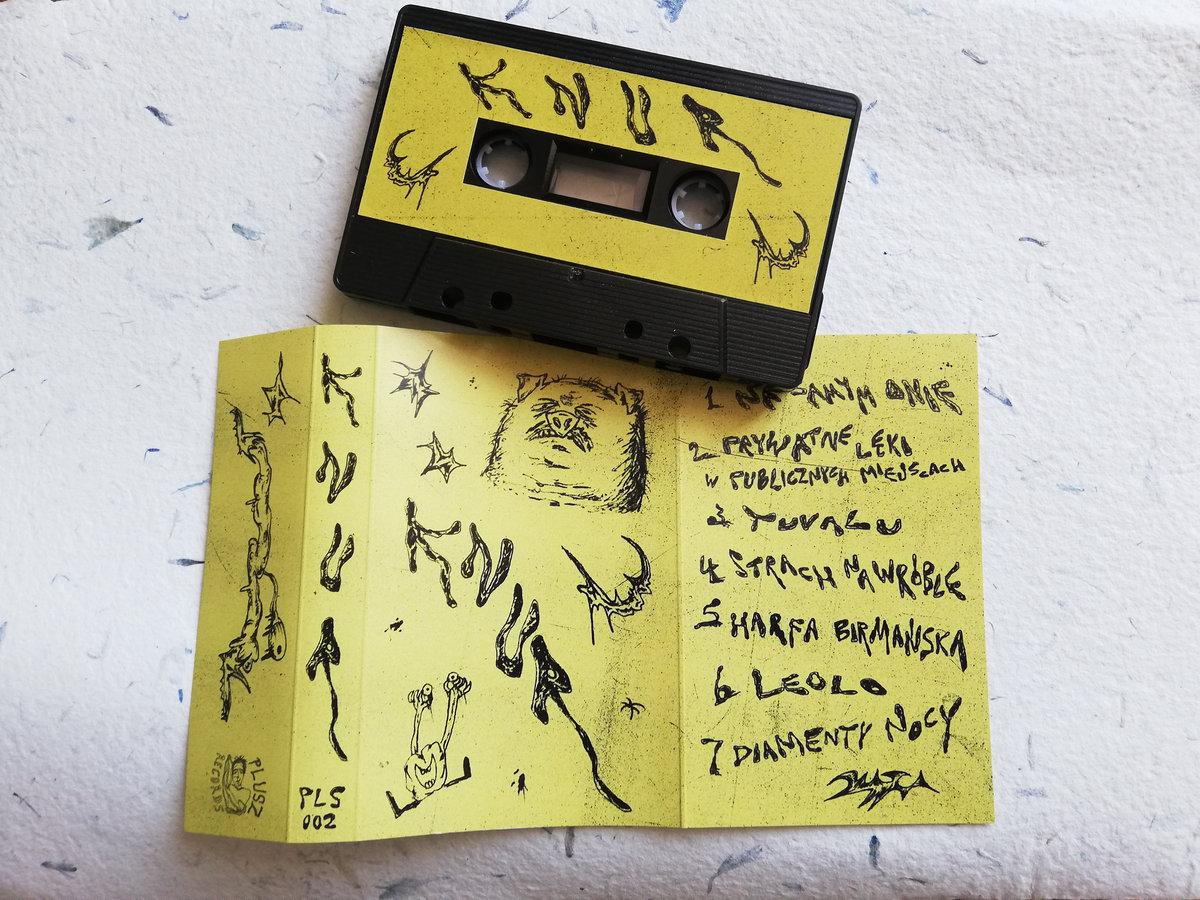 KNUR
KNUR
PLS
002
PLUSZ
RECORDS
KNUR
1 NA SAMYM DNIE
2 PRYWATNE LĘKI
W PUBLICZNYCH MIEJSCACH
3 TUVALU
4 STRACH NA WRÓBLE
5 HARFA BIRMAŃSKA
6 LEOLO
7 DIAMENTY NOCY